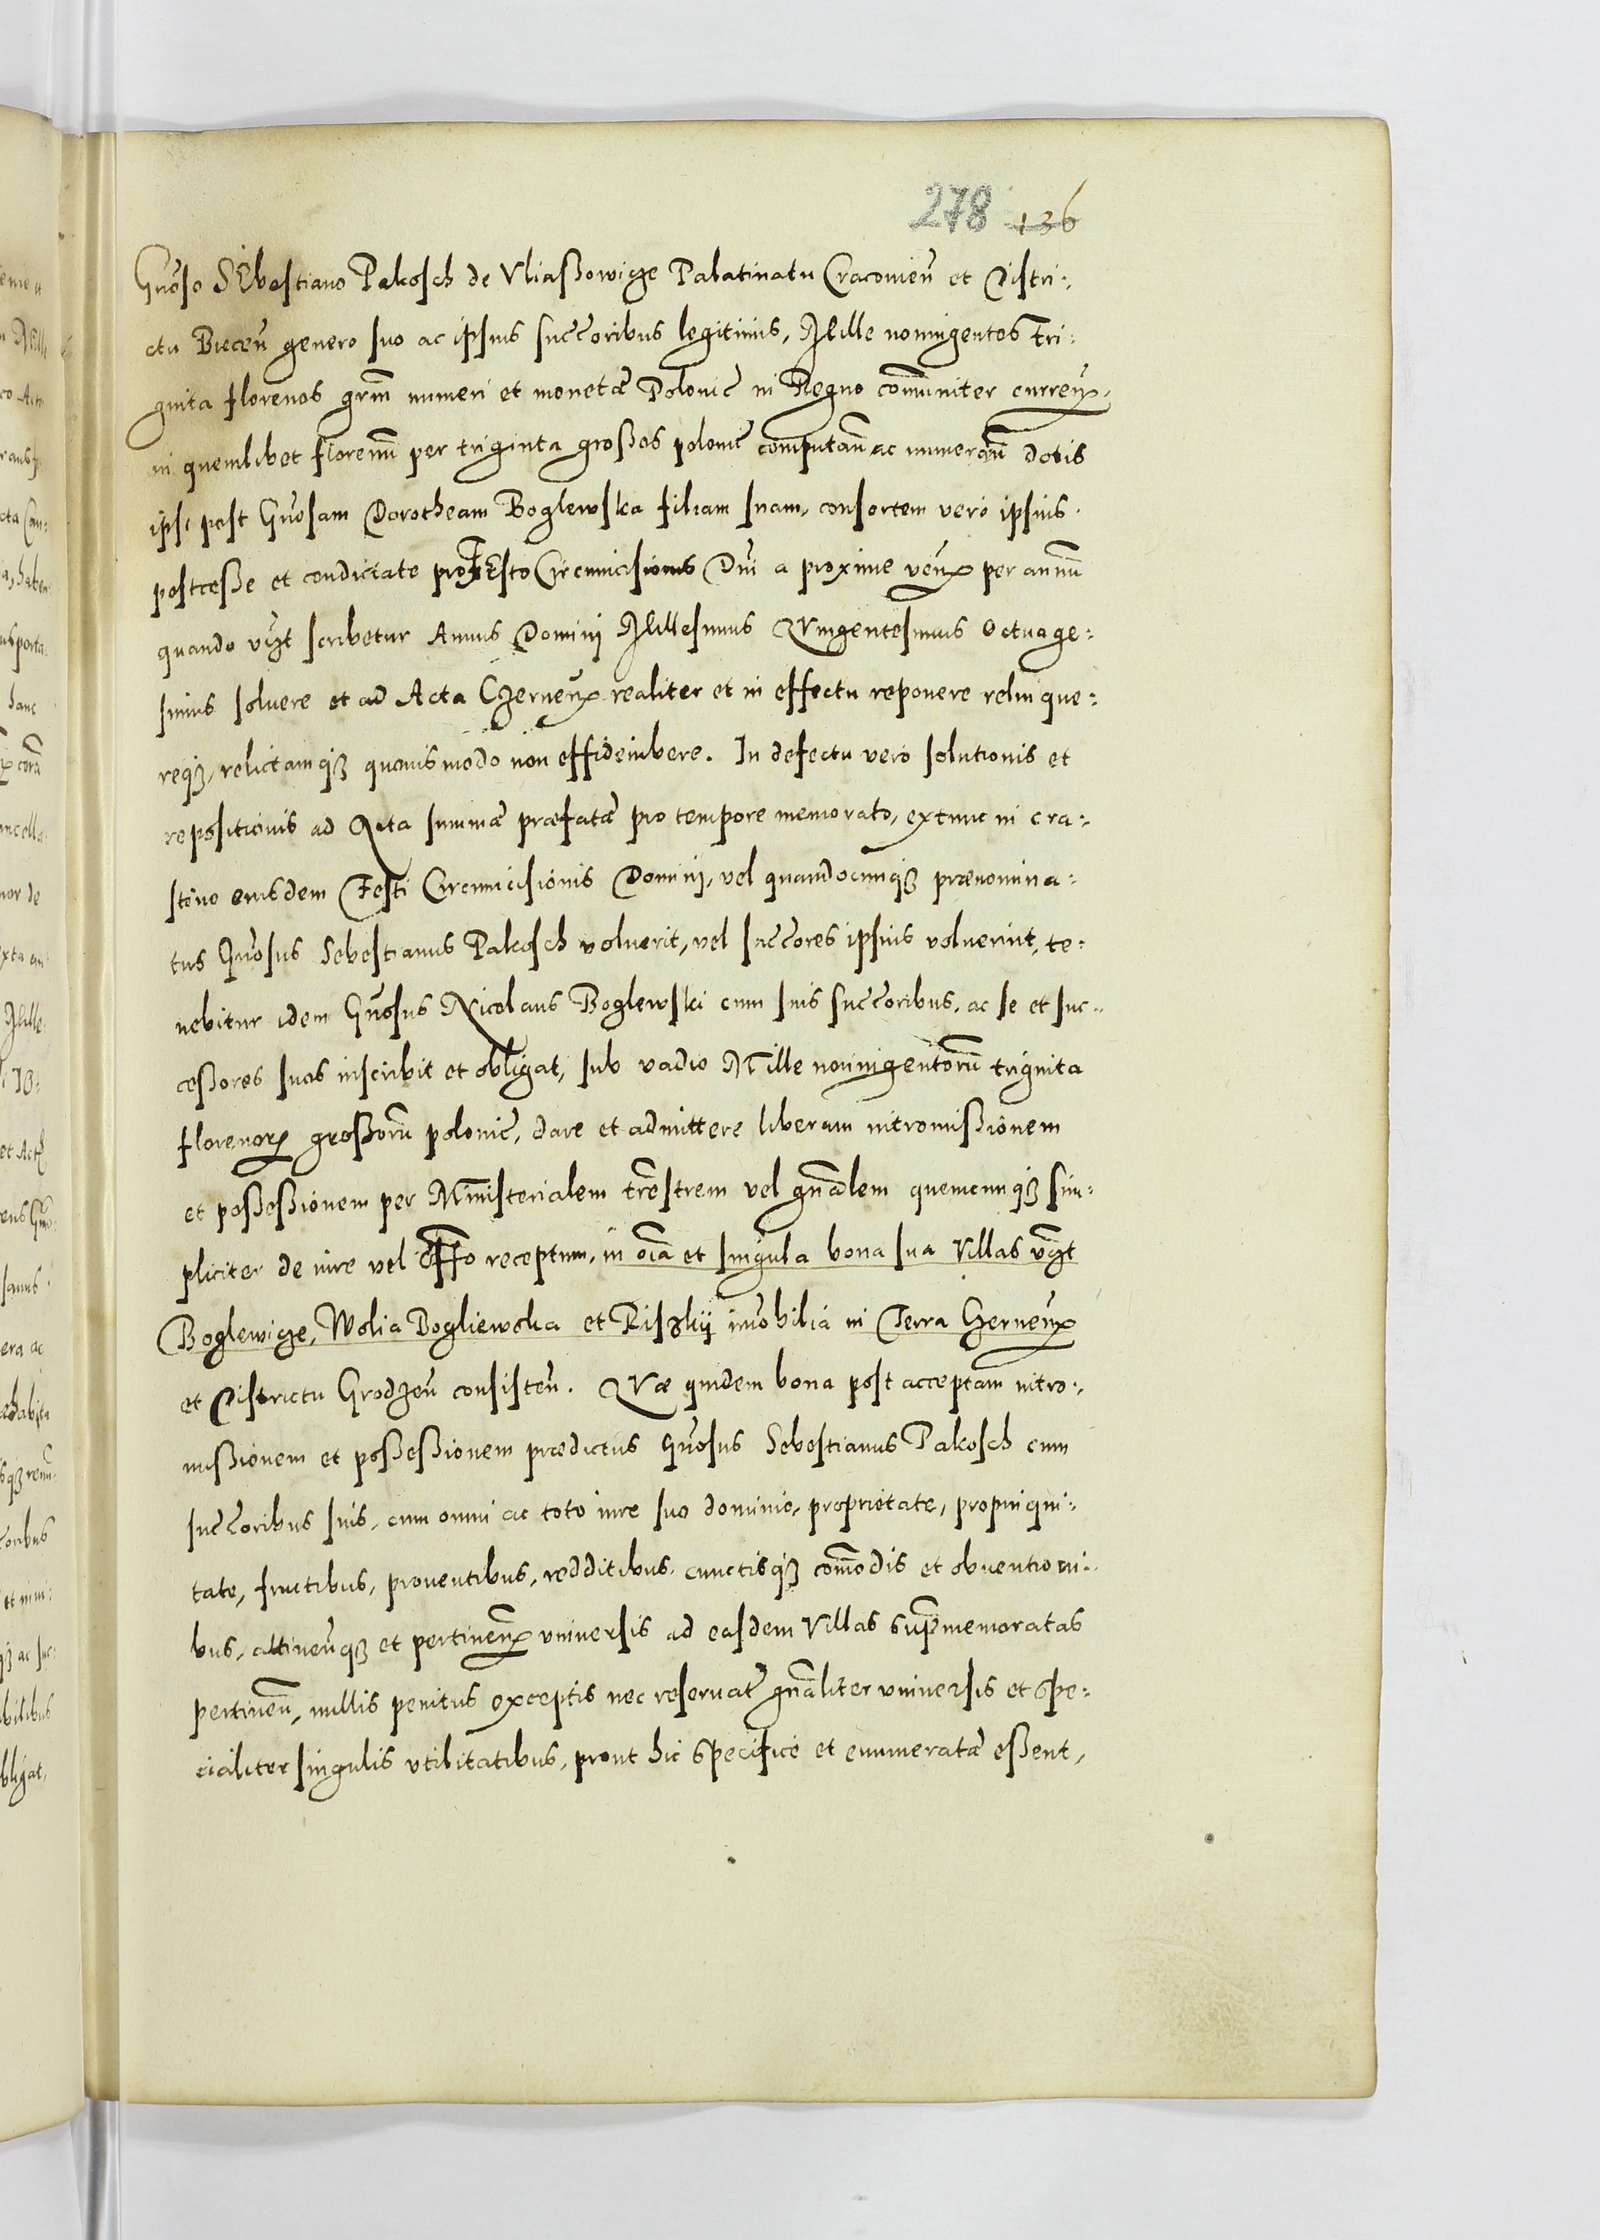 278 136
Gnoso Sebastiano Pakosch de Vliaßowicze Palatinatu Cracovien̄ et Distri:
ctu Biecen̄ genero suo ac ipsius succ̄oribus legitimis, Mille noningentos tri:
ginta florenos grm̄ numeri et monetæ Polonic̄ in Regno com̄uniter curren̄,
in quemlibet florenum per triginta großos polonic̄ computan̄ ac numeran̄ dotis
ipsi post Gnosam Dorotheam Boglewska filiam suam, consortem vero ipsius
postceße et condictate pro Festo Circumcisionis Dni a proxime ven̄ per annum
quando vczt scribetur Annus Domini Millesimus Quingentesimus Octuage:
simus soluere et ad Acta Czernen̄ realiter et in effectu reponere relinque:
reqz, relictamqz quouismodo non effideiubere. In defectu vero solutionis et
repositionis ad Acta summæ præfatæ pro tempore memorato, extunc in cra:
stino eiusdem Festi Circumcisionis Dominij, vel quandocunqz prænomina:
tus Gnosus Sebestianus Pakosch voluerit, vel succ̄ores ipsius voluerint, te:
nebitur idem Gnosus Nicolaus Boglewski cum suis succ̄oribus, ac se et suc:
ceßores suos inscribit et obligat, sub vadio Mille noningentorum triginta
florenorꝝ großorum polonic̄, dare et admittere liberam intromißionem
et poßeßionem per Ministerialem trēstrem vel gn̄alem quemcunqz sim:
pliciter de iure vel offo receptum, in oīa et singula bona sua Villas vczt
Boglewicze, Wolia Bogliewska et Riszkij imobilia in Terra Czernen̄
et Districtu Grodzen̄ consisten̄. Quæ quidem bona post acceptam intro:
mißionem et poßeßionem prædictus Gnosus Sebestianus Pakosch cum
succ̄oribus suis, cum omni ac toto iure suo dominio, proprietate, propinqui:
tate, fructibus, prouentibus, redditibus, cunctisqz com̄odis et obuentioni:
bus, attinen̄qz et pertinen̄ vniuersis ad easdem Villas supramemoratas
pertinen̄, nullis penitus exceptis nec reseruat̄ gn̄aliter vniuersis et spe:
cialiter singulis vtilitatibus, prout hic specifice et enumeratæ eßent,